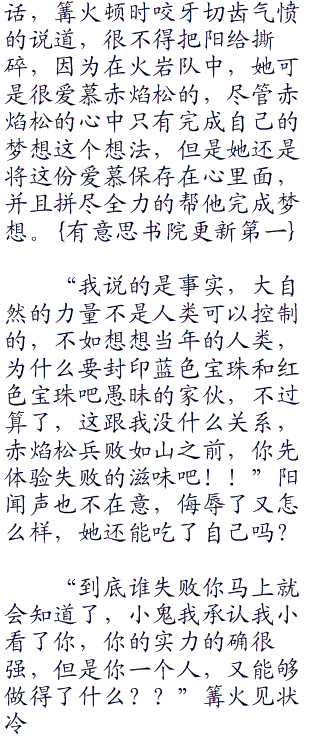 话，篝火顿时咬牙切齿气愤
的说道，很不得把阳给撕
碎，因为在火岩队中，她可
是很爱慕赤焰松的，尽管赤
焰松的心中只有完成自己的
梦想这个想法，但是她还是
将这份爱慕保存在心里面，
并且拼尽全力的帮他完成梦
想。{有意思书院更新第一}
“我说的是事实，大自
然的力量不是人类可以控制
的，不如想想当年的人类，
为什么要封印蓝色宝珠和红
色宝珠吧愚昧的家伙，不过
算了，这跟我没什么关系，
赤焰松兵败如山之前，你先
体验失败的滋味吧！！”阳
闻声也不在意，侮辱了又怎
么样，她还能吃了自己吗？
“到底谁失败你马上就
会知道了，小鬼我承认我小
看了你，你的实力的确很
强，但是你一个人，又能够
做得了什么？？”篝火见状
冷